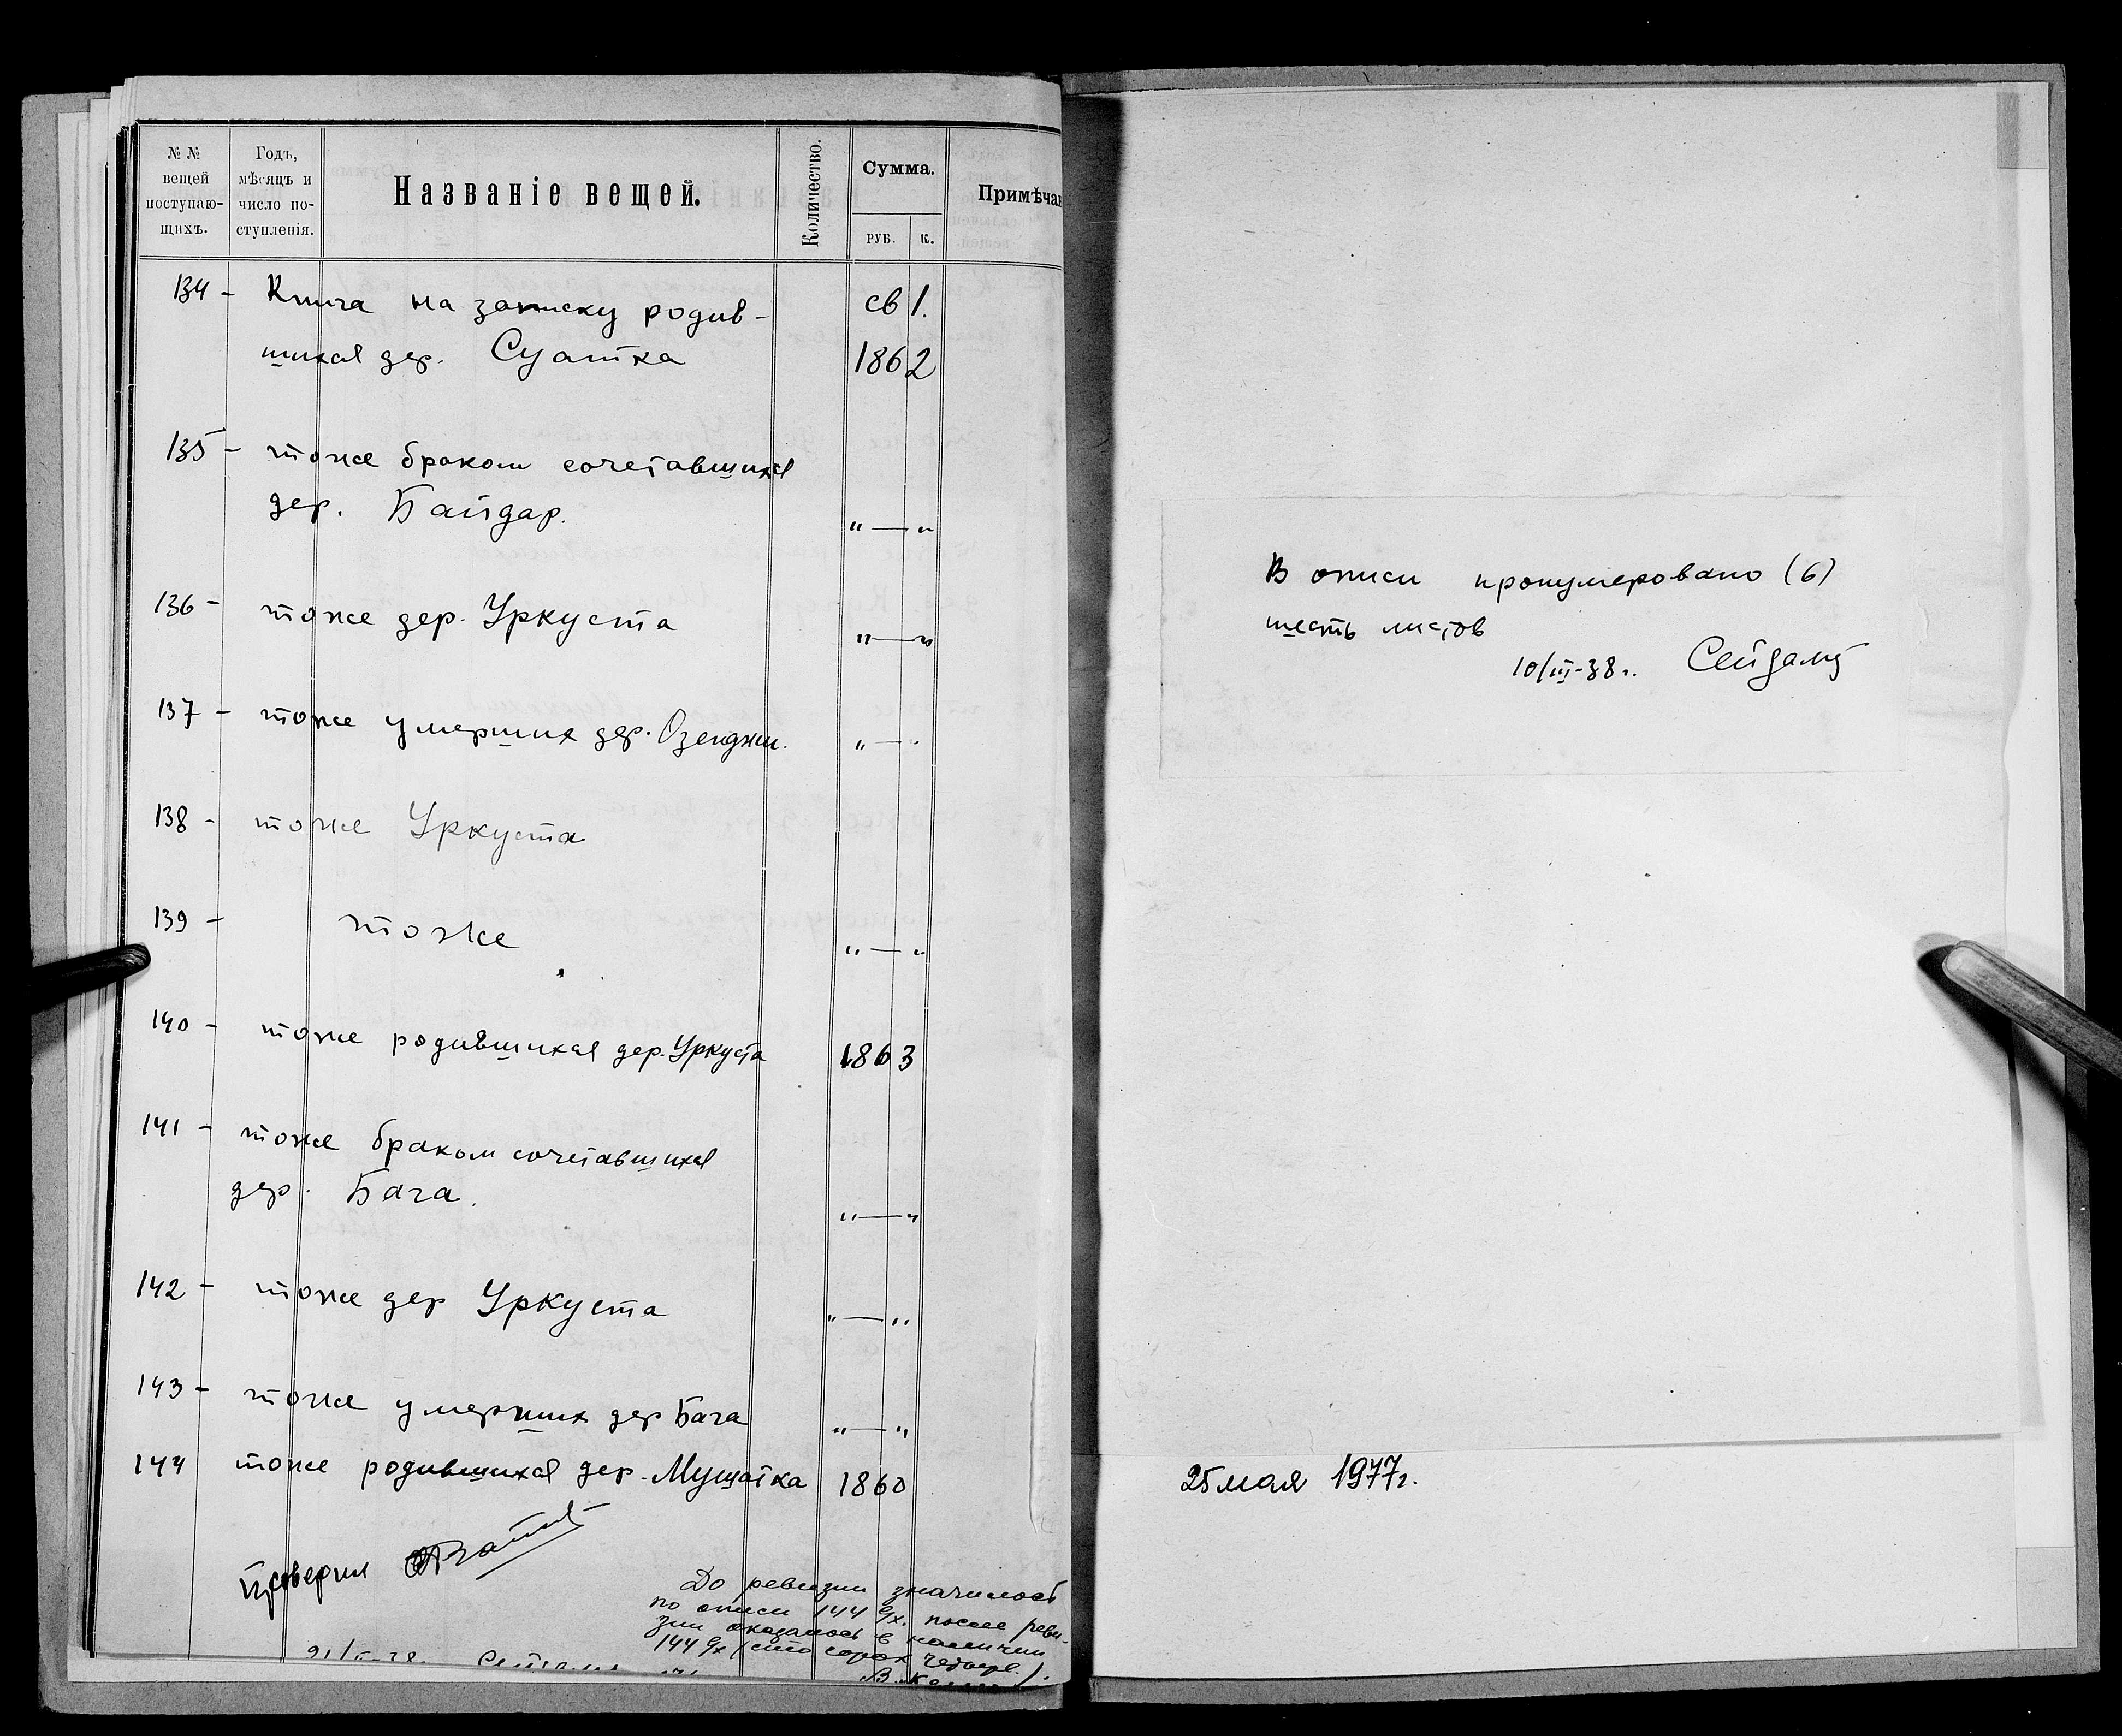 № №
вещей
поступаю-
щихъ.
Годъ,
мѣсяцъ и
число по-
ступленія.
Названіе вещей.
Количество.
Сумма.
РУБ. К.
Примѣчан
134 - Книга на записку родив- св 1.
шихся дер. Суатка 1862
135 - тоже браком сочетавшихся
дер. Байдар. " — "
136 - тоже дер. Уркуста " — "
137 - тоже умерших дер. Озенджи. " — "
138 - тоже Уркуста
139 - тоже " — "
140 - тоже родившихся дер. Уркуста 1863
141 - тоже браком сочетавшихся
дер. Бага. " — "
142 - тоже дер Уркуста " — "
143 - тоже умерших дер Бага " — "
144 тоже родившихся дер. Мушатка 1860
Проверил
До ревизии значилось
по описи 144 ух. после реви-
зии оказалось в наличии
144 ух (сто сорок четыре).
В описи пронумеровано (6)
шесть листов
10/III-38 г. Сейдамет
25 мая 1977 г.